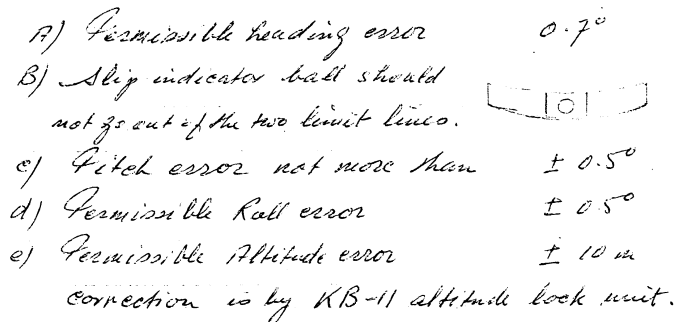 A) Permissible heading error 0.7°
B) Slip indicator ball should
not go out of the two limit lines.
c) Pitch error not more than ± 0.5°
d) Permissible Roll error ± 0.5°
e) Permissible Altitude error ± 10 m
correction is by KB-11 altitude lock unit.